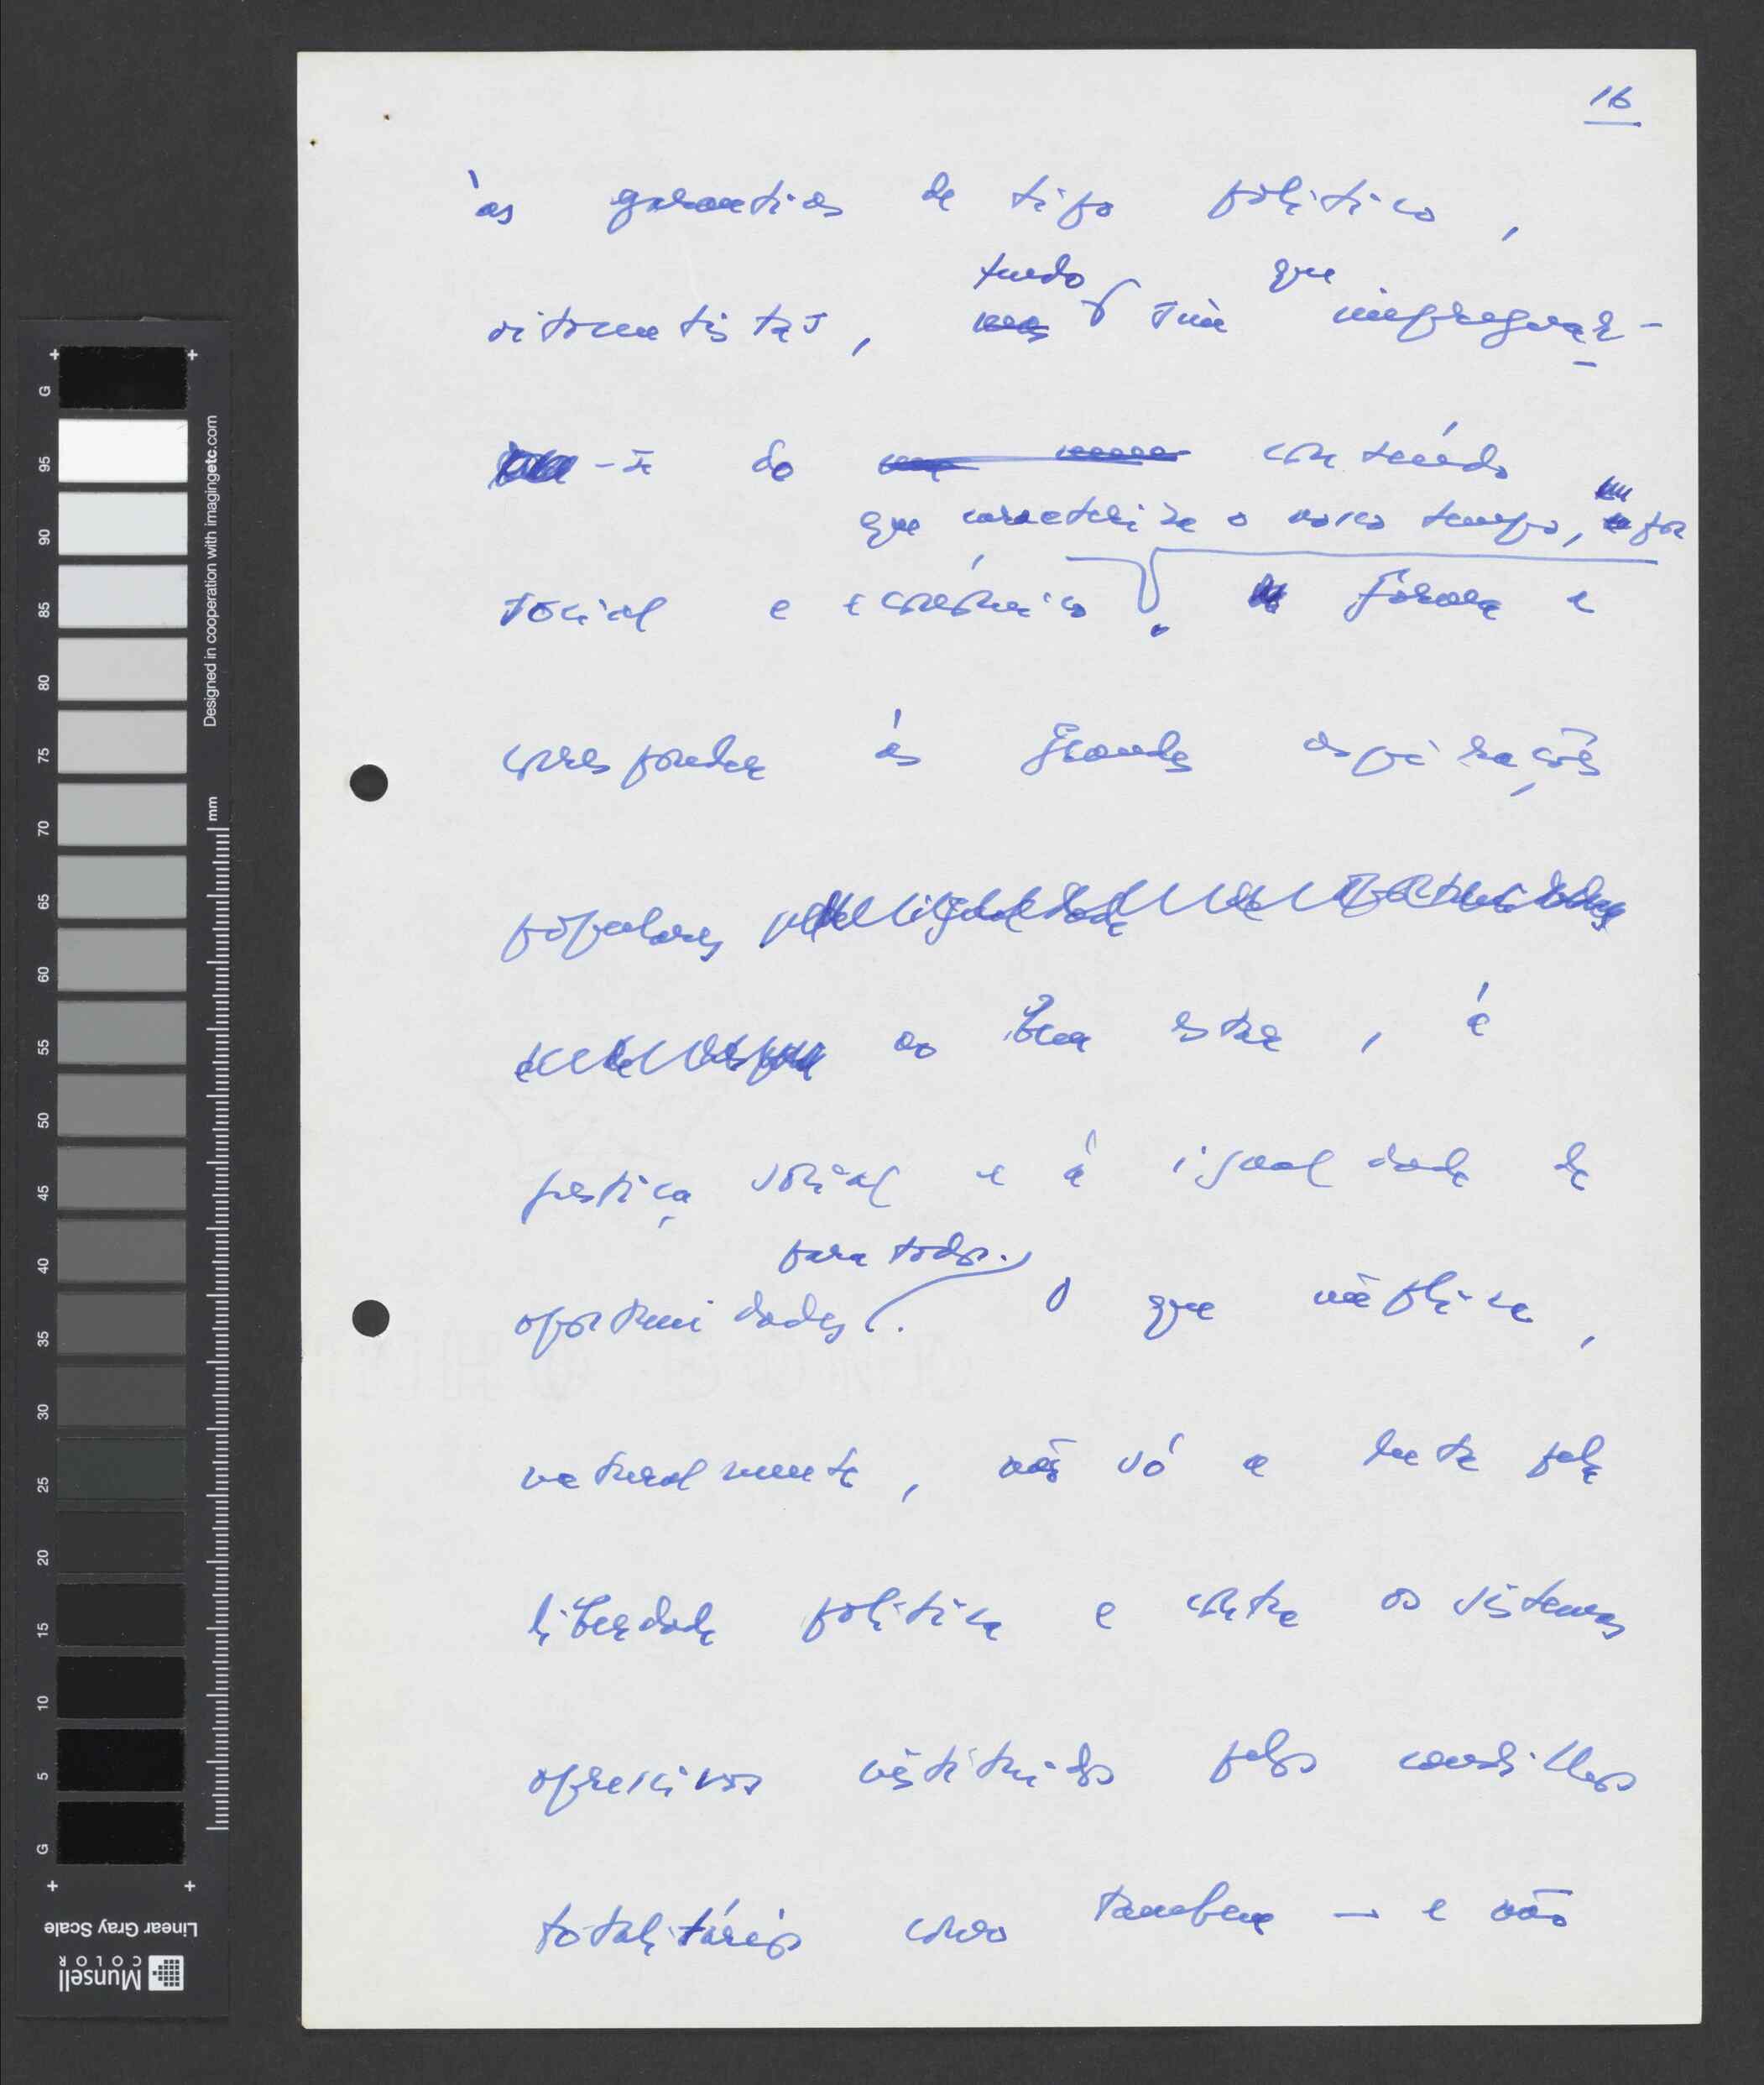 16
às garantias de tipo político,
tudo que
oitocentistas, mas tem impregnar-
-se do conteúdo
que caracteriza o nosso tempo, por
social e económico. forma e
corresponder ás grandes aspirações
populares
ao bem estar, á
justiça social e á igualdade de
para todos.
oportunidades. O que implica,
naturalmente, não só a luta pela
liberdade politica e contra os sistemas
opressivos instituidos pelos caudillos
totalitários como tambem — e não
G
95
90
85
80
75
70
65
60
55
50
45
40
35
30
25
20
15
10
5
G
mm
Designed in cooperation with imagingetc.com
Linear Gray Scale
Munsell
COLOR